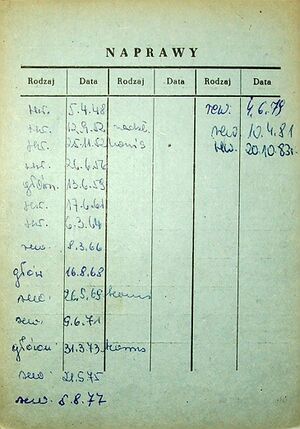 NAPRAWY
Rodzaj Data Rodzaj Data Rodzaj Data
rew. 5.4.48 rew. 4.6.79
rew. 12.9.52 rew. 10.4.81
rew. 25.11.52 rew. 20.10.83r.
rew. 6.56
główn. 13.6.59
rew. 17.6.61
rew. 6.3.64
rew. 8.3.66
głów 16.8.68
rew. 26.5.69
rew. 9.6.71
główn 31.3.73
rew. 21.5.75
rew. 5.8.77